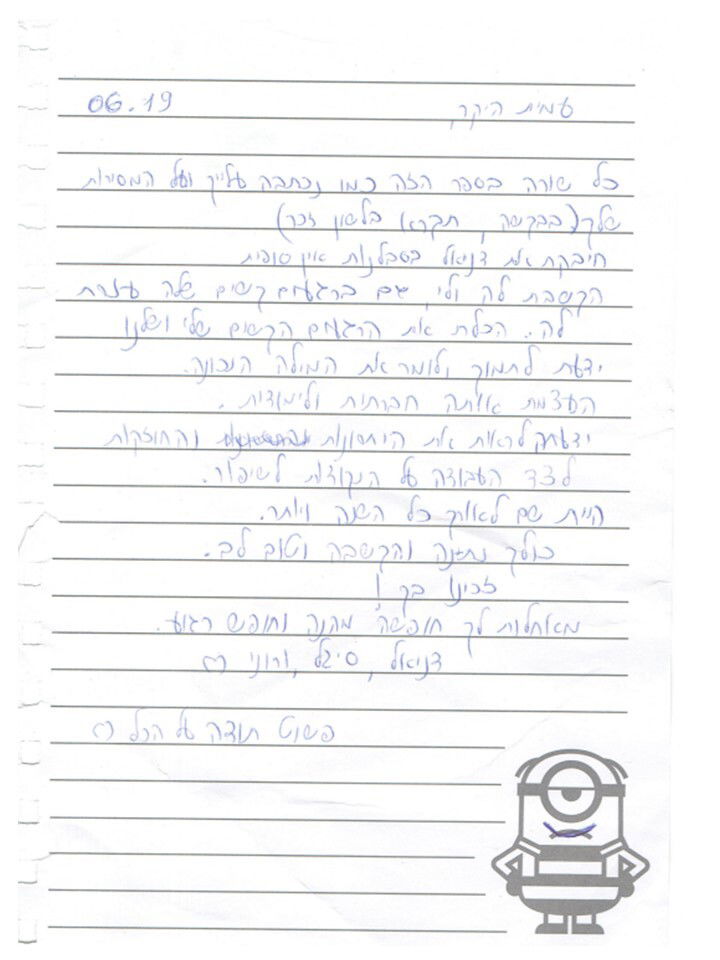 עמית היקר, 06.19
כל שורה בספר הזה כמו נכתבה עלייך ועל המסירות
שלך (בבקשה, תקרא בלשון זכר)
חיבקת את דניאל בסבלנות אין סופית
הקשבת לה ולי, גם ברגעים קשים שלה עזרת
לה. הכלת את הרגעים הקשים שלי ושלנו
ידעת לתמוך ולומר את המילה הנכונה.
העצמת אותה חברתית ולימודית.
ידעת לראות את החסונות והחוזקות
לצד העבודה על הנקודות לשיפור.
היית שם לאורך כל השנה ויותר.
כולך נתינה והקשבה וטוב לב.
זכינו בך!
מאחלות לך חופשה מהנה וחופש רגוע.
דניאל, סיגל, ורוני
פשוט תודה על הכל